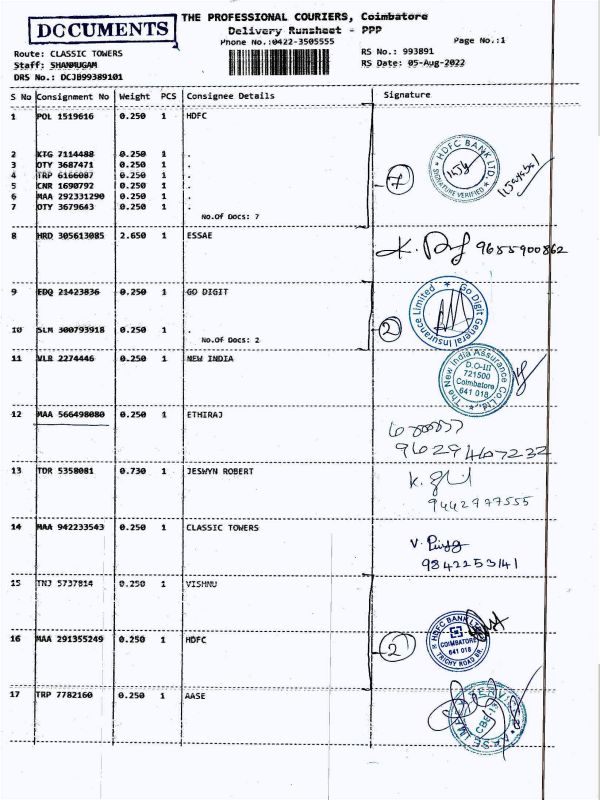 DOCUMENTS
THE PROFESSIONAL COURIERS, Coimbatore
Delivery Runsheet - PPP
Phone No.:0422-3505555
Page No.:1
Route: CLASSIC TOWERS
Staff: SHANMUGAM
DRS No.: DCJB99389101
RS No.: 993891
RS Date: 05-Aug-2022
S No Consignment No Weight PCS Consignee Details Signature
1 POL 1519616 0.250 1 HDFC
2 KTG 7114488 0.250 1 .
3 OTY 3687471 0.250 1 .
4 TRP 6166087 0.250 1 .
5 CNR 1690792 0.250 1 .
6 MAA 292331290 0.250 1 .
7 OTY 3679643 0.250 1 .
No.Of Docs: 7
7
HDFC BANK LTD.
SIGNATURE VERIFIED
8 HRD 305613085 2.650 1 ESSAE
9655900862
9 EDQ 21423836 0.250 1 GO DIGIT
10 SLM 300793918 0.250 1 .
No.Of Docs: 2
2
Go Digit General Insurance Limited
11 VLR 2274446 0.250 1 NEW INDIA
The New India Assurance Co. Ltd.
D.O-III
721500
Coimbatore
641 018
12 MAA 566498080 0.250 1 ETHIRAJ
9629467232
13 TDR 5358081 0.730 1 JESWYN ROBERT
9442997555
14 MAA 942233543 0.250 1 CLASSIC TOWERS
9842253141
15 TNJ 5737814 0.250 1 VISHNU
16 MAA 291355249 0.250 1 HDFC
2
HDFC BANK LTD
COIMBATORE
641 018
TRICHY ROAD BR.
17 TRP 7782160 0.250 1 AASE